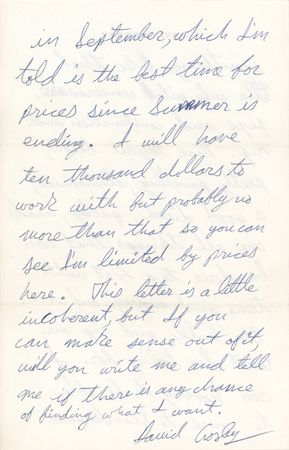 in September, which I'm
told is the best time for
prices since Summer is
ending. I will have
ten thousand dollars to
work with but probably no
more than that so you can
see I'm limited by prices
here. This letter is a little
incoherent, but if you
can make sense out of it,
will you write me and tell
me if there is any chance
of finding what I want.
David Crosby